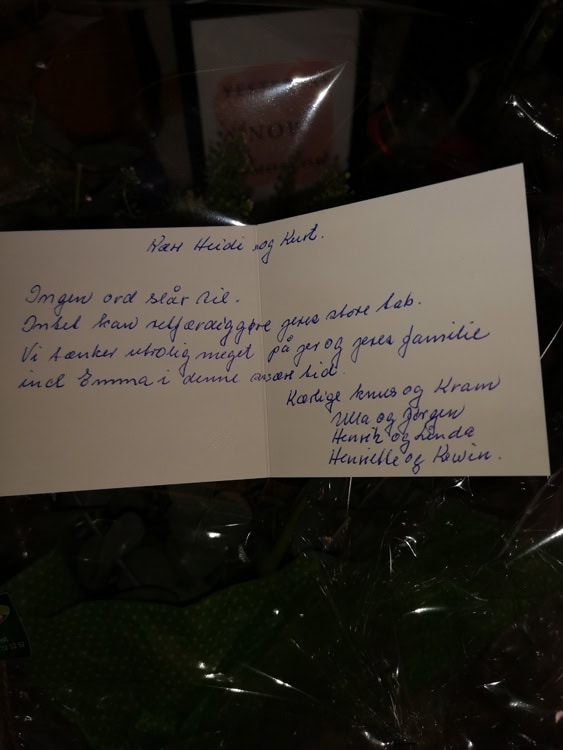 NOW
Kære Heidi og Kurt.
Ingen ord slår til.
Intet kan retfærdiggøre jeres store tab.
Vi tænker utrolig meget på jer og jeres familie
incl Emma i denne svære tid.
Kærlige knus og Kram
Ulla og Jørgen
Henrik og Linda
Henriette og Kewin.